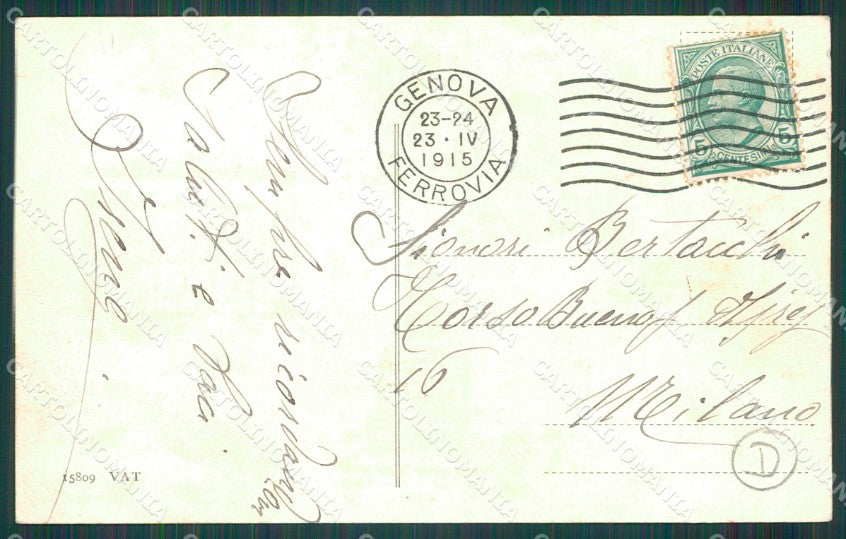 GENOVA
23-24
23 · IV
1915
FERROVIA
POSTE ITALIANE
5 5
CENTESIMI
Sempre ricordando
Saluti e baci
Signori Bertacchi
Corso Buenos
16
Milano
15809 VAT
D
CARTOLINOMANIA